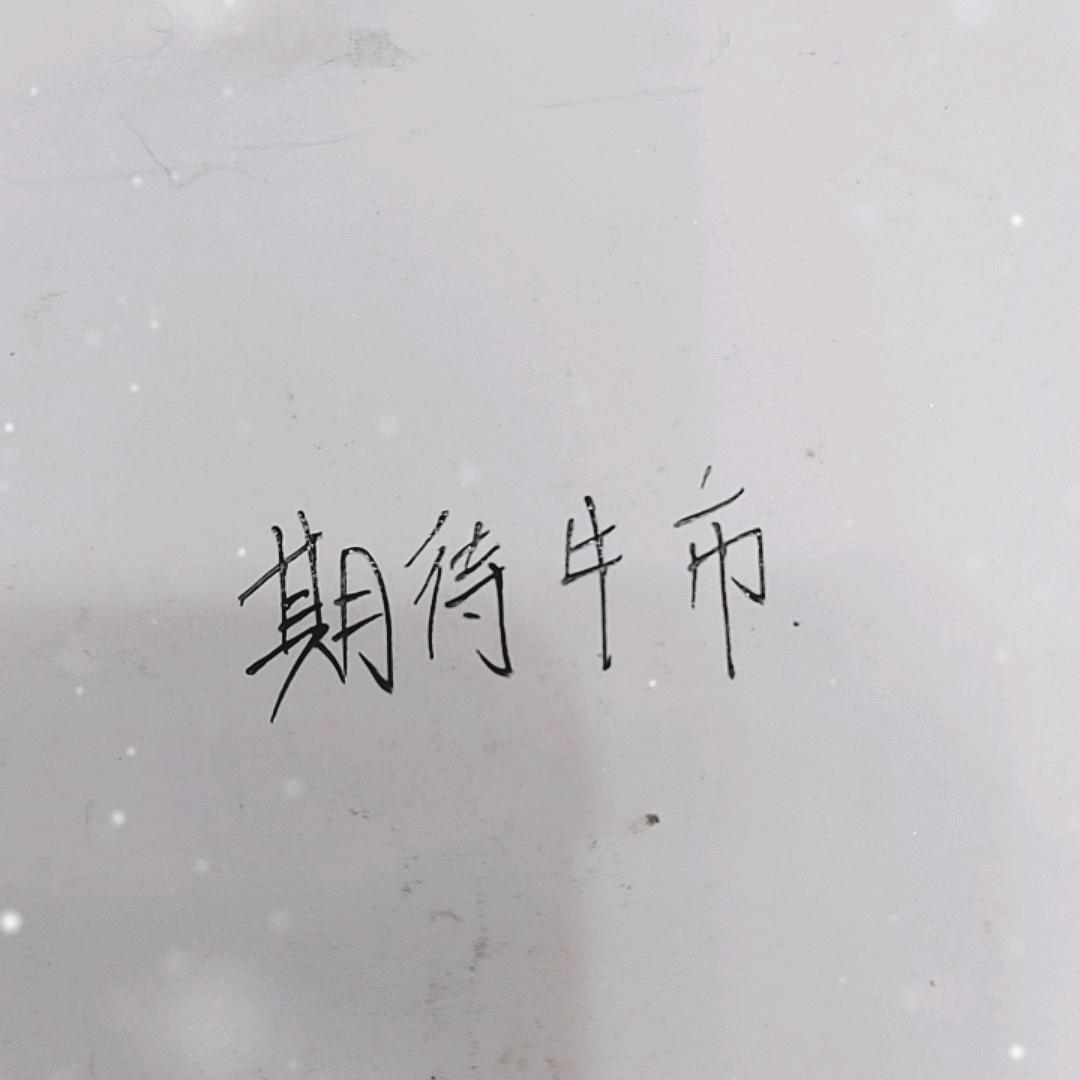 期待牛市.